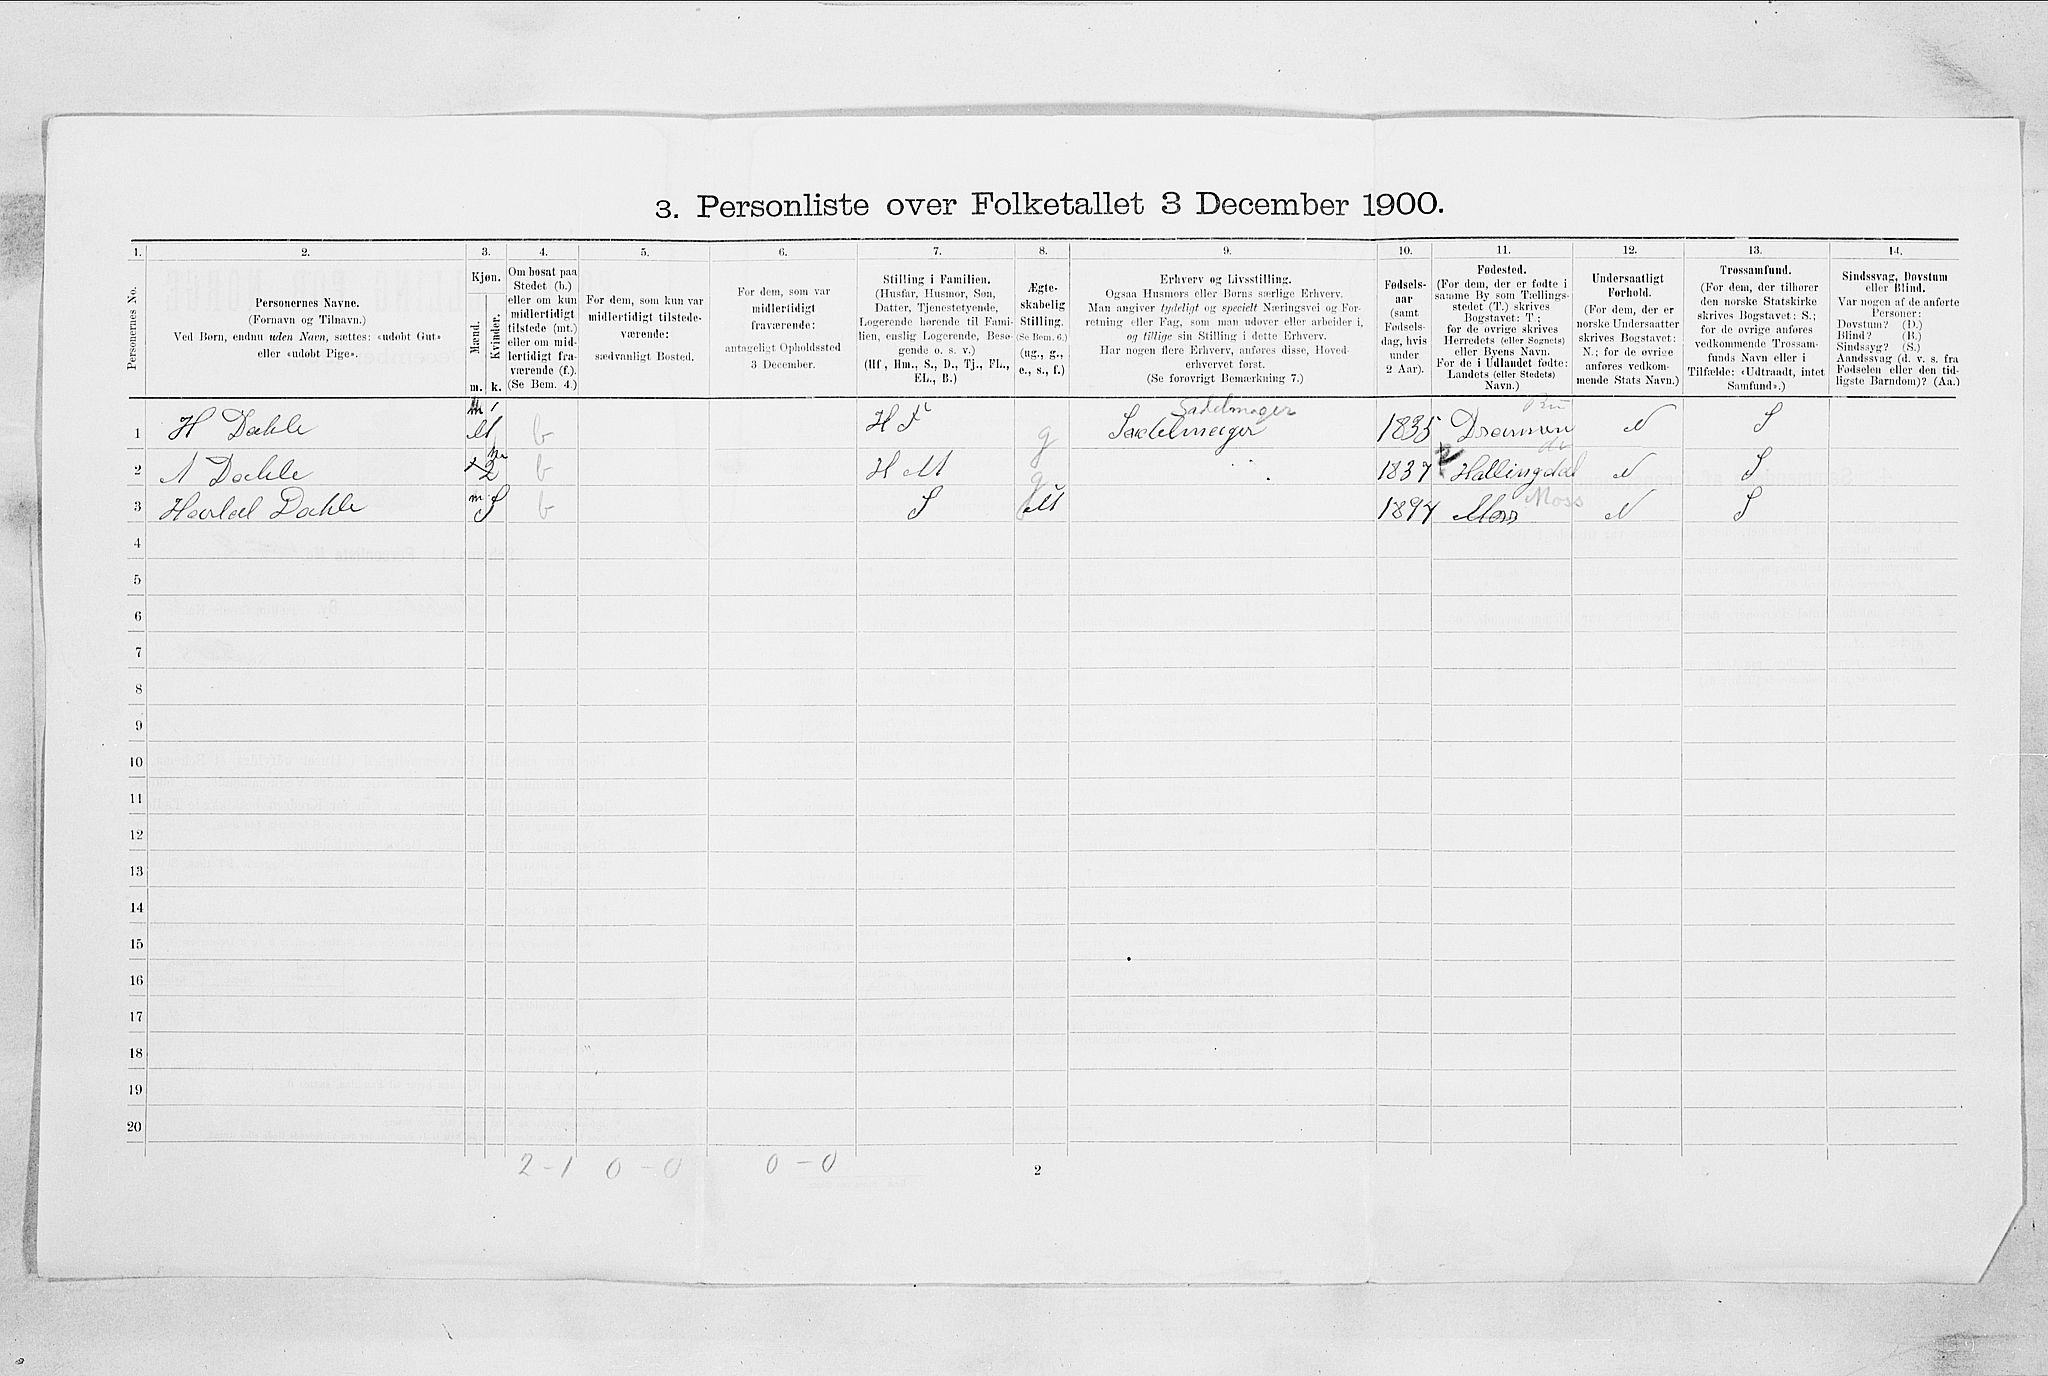 3. Personliste over Folketallet 3 December 1900.
1. 2. 3. 4. 5. 6. 7. 8. 9. 10. 11. 12. 13. 14.
Personernes No.
Personernes Navne.
(Fornavn og Tilnavn.)
Ved Børn, endnu uden Navn, sættes: «udøbt Gut»
eller «udøbt Pige».
Kjøn.
Mænd.
Kvinder.
m. k.
Om bosat paa
Stedet (b.)
eller om kun
midlertidigt
tilstede (mt.)
eller om mid-
lertidigt fra-
værende (f.).
(Se Bem. 4.)
For dem, som kun var
midlertidigt tilstede-
værende:
sædvanligt Bosted.
For dem, som var
midlertidigt
fraværende:
antageligt Opholdssted
3 December.
Stilling i Familien.
(Husfar, Husmor, Søn,
Datter, Tjenestetyende,
Logerende hørende til Fami-
lien, enslig Logerende, Besø-
gende o. s. v.)
(Hf., Hm., S., D., Tj., FL.,
EL., B.)
Ægte-
skabelig
Stilling.
(Se Bem. 6.)
(ug., g.,
e., s., f.)
Erhverv og Livsstilling.
Ogsaa Husmors eller Børns særlige Erhverv.
Man angiver tydeligt og specielt Næringsvei og For-
retning eller Fag, som man udøver eller arbeider i,
og tillige sin Stilling i dette Erhverv.
Har nogen flere Erhverv, anføres disse, Hoved-
erhvervet først.
(Se forøvrigt Bemærkning 7.)
Fødsels-
aar
(samt
Fødsels-
dag, hvis
under
2 Aar).
Fødested.
(For dem, der er fødte i
samme By som Tællings-
stedet (T.) skrives
Bogstavet: T.;
for de øvrige skrives
Herredets (eller Sognets)
eller Byens Navn.
For de i Udlandet fødte:
Landets (eller Stedets)
Navn.)
Undersaatligt
Forhold.
(For dem, der er
norske Undersaatter
skrives Bogstavet:
N.; for de øvrige
anføres vedkom-
mende Stats Navn.)
Trossamfund.
(For dem, der tilhører
den norske Statskirke
skrives Bogstavet: S.;
for de øvrige anføres
vedkommende Trossam-
funds Navn eller i
Tilfælde: «Udtraadt, intet
Samfund».)
Sindssvag, Døvstum
eller Blind.
Var nogen af de anførte
Personer:
Døvstum? (D.)
Blind? (B.)
Sindssyg? (S.)
Aandssvag (d. v. s. fra
Fødselen eller den tid-
ligste Barndom)? (Aa.)
Sadelmager
1 H Dahle M b H F g Sadelmager 1835 Drammen N S
2 A Dahle b H M g 1837 Hallingdal N S
3 Harlal Dahle S b S M 1897 Moss Moss N S
4
5
6
7
8
9
10
11
12
13
14
15
16
17
18
19
20
2 - 1 0 - 0 0 - 0
2